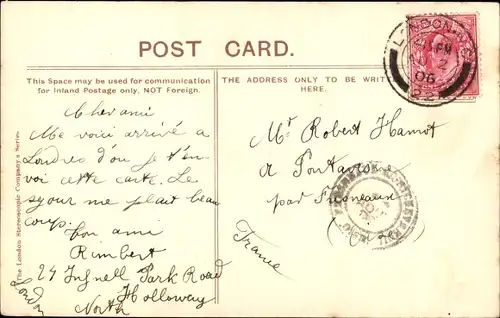 POST CARD.
This Space may be used for communication
for Inland Postage only, NOT Foreign.
THE ADDRESS ONLY TO BE WRIT
HERE.
Cher ami
Me voici arrivé a
Londres d'ou je t'en
voi cette carte. Le
sejour me plait beau
coup.
ton ami
Rimbert
24 Tufnell Park Road
North Holloway
London
Mr Robert Hamot
a
par
France
The London Stereoscopic Company's Series
LONDON
PM
2
06